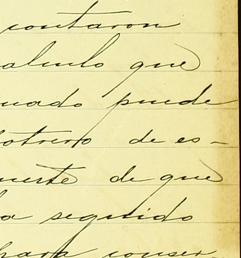 contaron
alculo que
uado puede
potrero de es-
uerte de que
a seguido
para conser